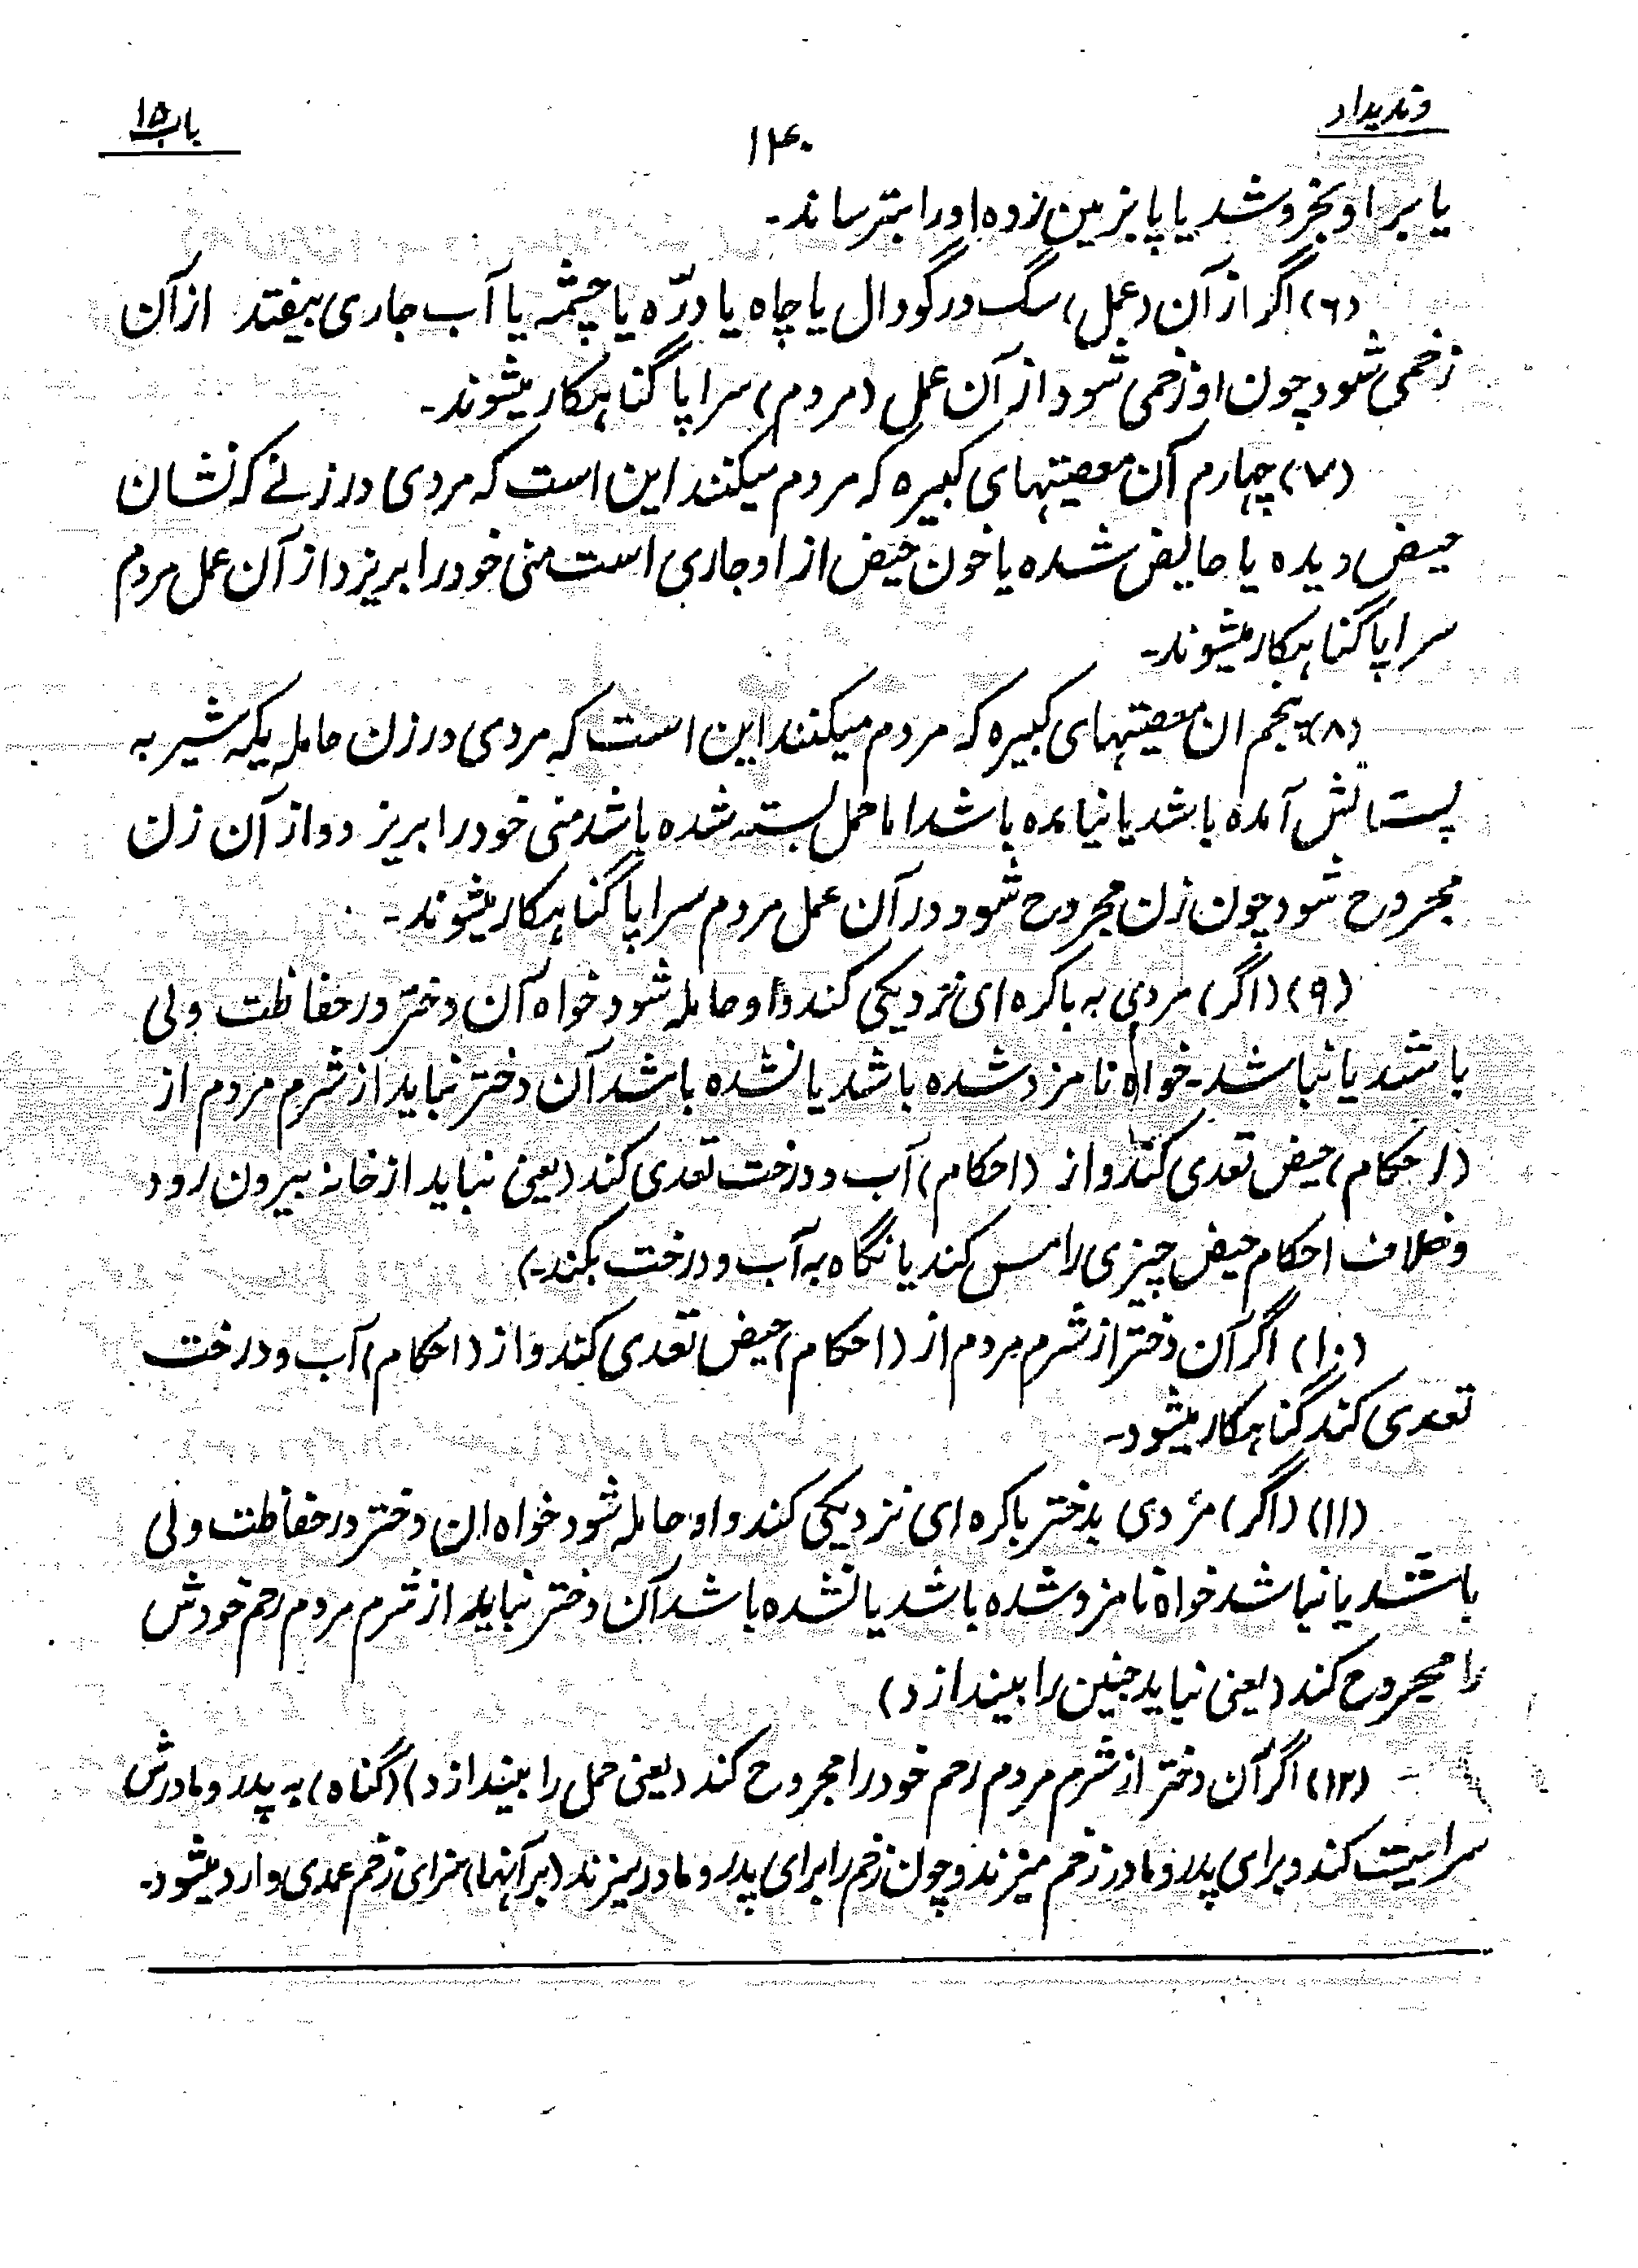 وندیداد
۱۴۰
باب ۱۵
یا بر او بخروشد یا پا بزمین زده او را بترساند-
(۶) اگر از آن (عمل) سگ در گودال یا چاه یا درّه یا چشمه یا آب جاری بیفتد از آن
زخمی شود چون او زخمی شود از آن عمل (مردم) سراپا گناهکار میشوند-
(۷) چهارم آن معصیتهای کبیره که مردم میکنند این است که مردی در زنے که نشان
حیض دیده یا حایض شده یا خون حیض از او جاری است منی خود را بریزد از آن عمل مردم
سراپا گناهکار میشوند-
(۸) پنجم ان معصیتهای کبیره که مردم میکنند این است که مردی در زن حامله یکه شیر به
پستانش آمده باشد یا نیامده باشد اما حمل بسته شده باشد منی خود را بریزد و از آن زن
مجروح شود چون زن مجروح شود در آن عمل مردم سراپا گناهکار میشوند-
(۹) (اگر) مردی به باکره ای نزدیکی کند و او حامله شود خواه آن دختر در حفاظت ولی
باشد یا نباشد- خواه نامزد شده باشد یا نشده باشد آن دختر نباید از شرم مردم از
(احکام) حیض تعدی کند و از (احکام) آب و درخت تعدی کند (یعنی نباید از خانه بیرون رود
و خلاف احکام حیض چیزی را مس کند یا نگاه به آب و درخت بکند-)
(۱۰) اگر آن دختر از شرم مردم از (احکام) حیض تعدی کند و از (احکام) آب و درخت
تعدی کند گناهکار میشود-
(۱۱) (اگر) مردی بدختر باکره ای نزدیکی کند و او حامله شود خواه ان دختر در حفاظت ولی
باشد یا نباشد خواه نامزد شده باشد یا نشده باشد آن دختر نباید از شرم مردم رحم خودش
را مجروح کند (یعنی نباید جنین را بیندازد)
(۱۲) اگر آن دختر از شرم مردم رحم خود را مجروح کند (یعنی حمل را بیندازد) (گناه) به پدر و مادرش
سرایت کند و برای پدر و مادر زخم میزند و چون زخم را برای پدر و مادر میزند (بر آنها) سزای زخم عمدی وارد میشود-